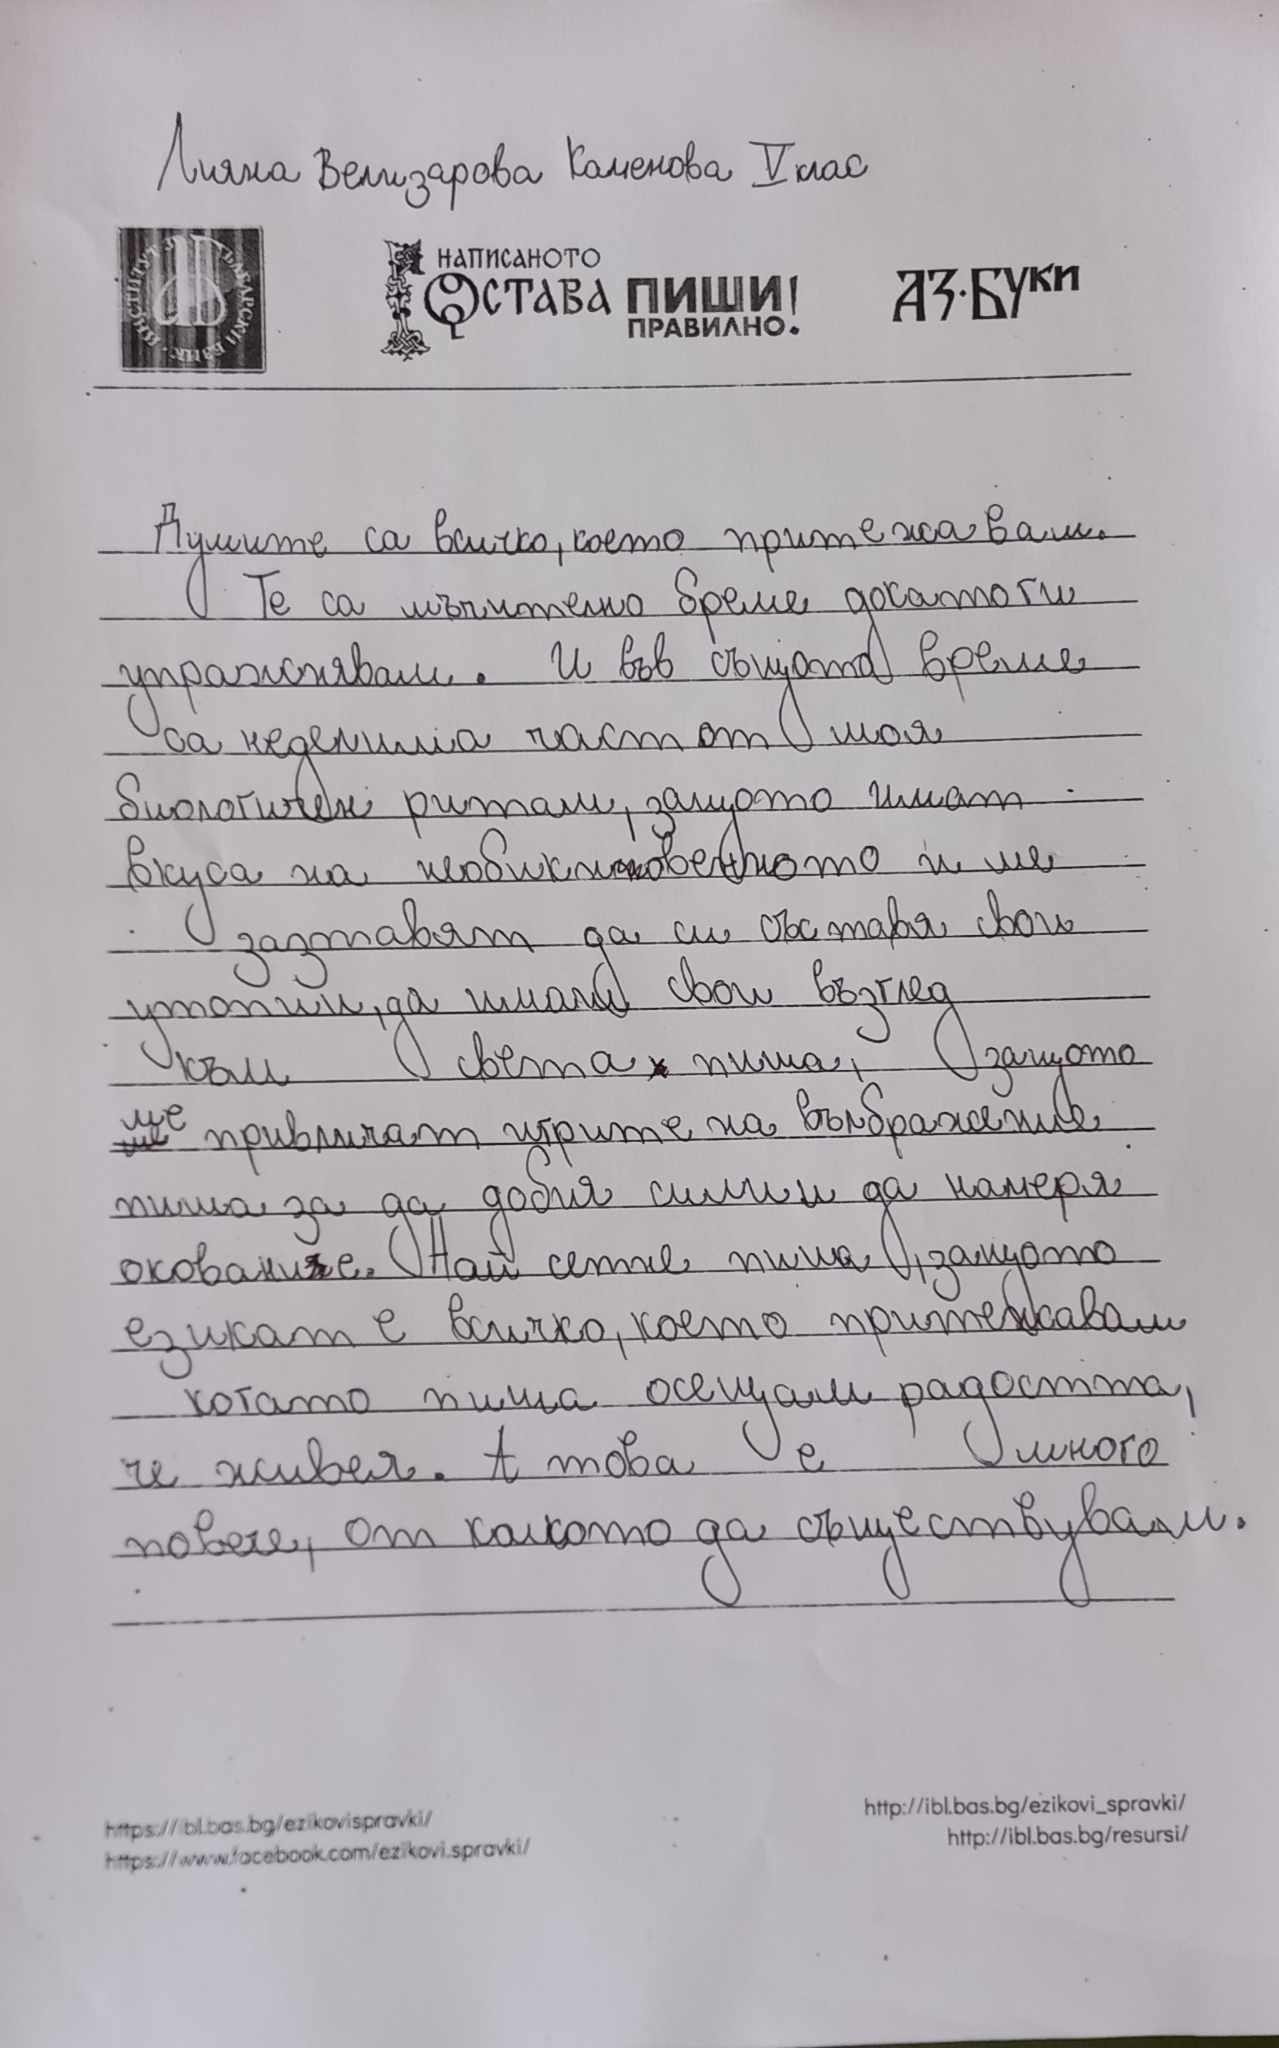 Лияна Велизарова Каменова V клас
ИНСТИТУТ ЗА БЪЛГАРСКИ ЕЗИК
НАПИСАНОТО
ОСТАВА ПИШИ!
ПРАВИЛНО.
АЗ·БУКИ
Думите са всичко, което притежавам.
Те са мъчително време докатоги
упражнявам. И във същота време
са неделима част от моя
биологичен ритам, защото имат
вкуса на необикновенното и ме
зазтавят да си съставя свои
утопии, да имам свои възглед
към света пиша, защото
ме привличат игрите на въображение
пиша за да добия сили и да намеря
окование. Най сетне пиша, защото
езикат е всичко, което притежавам
когато пиша осещам радостта,
че живея. А това е много
повече, от колкото да съществувам.
https://ibl.bas.bg/ezikovispravki/
https://www.facebook.com/ezikovi.spravki/
http://ibl.bas.bg/ezikovi_spravki/
http://ibl.bas.bg/resursi/